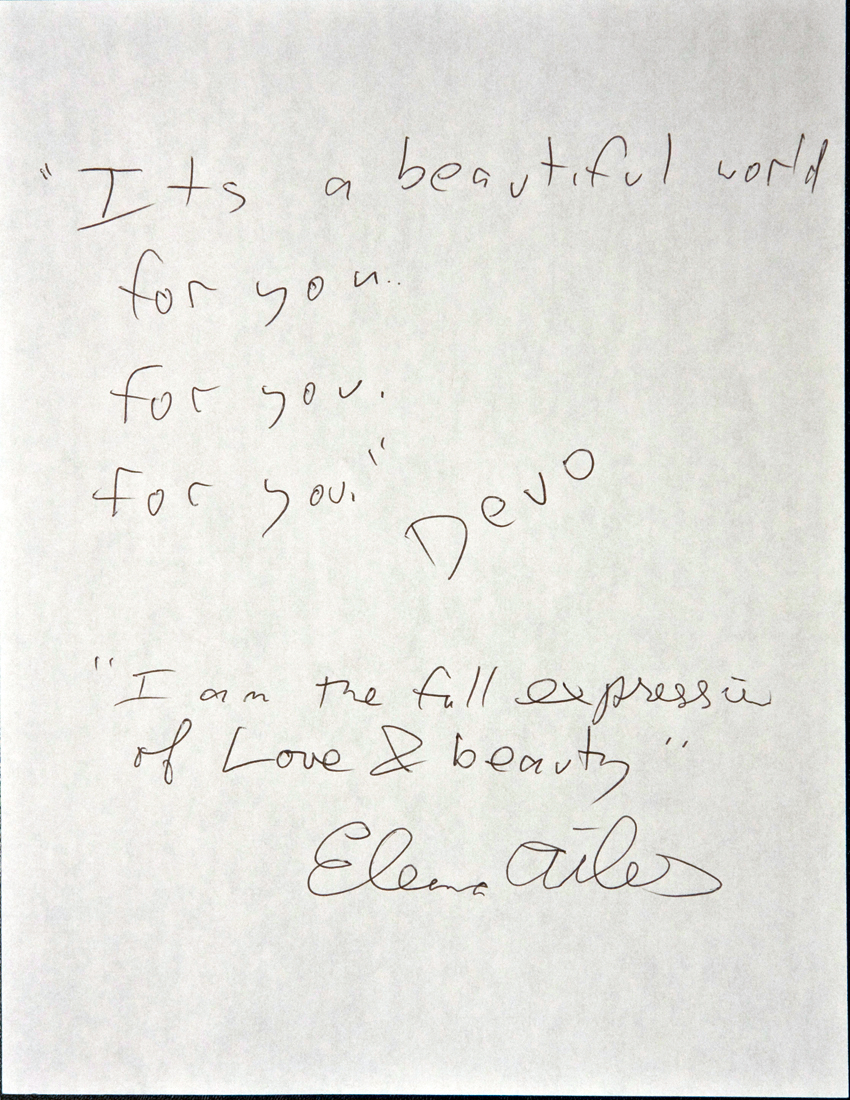 "Its a beautiful world
for you..
for you.
for you."
Devo
"I am the full expression
of Love & beauty"
Elena Ailes